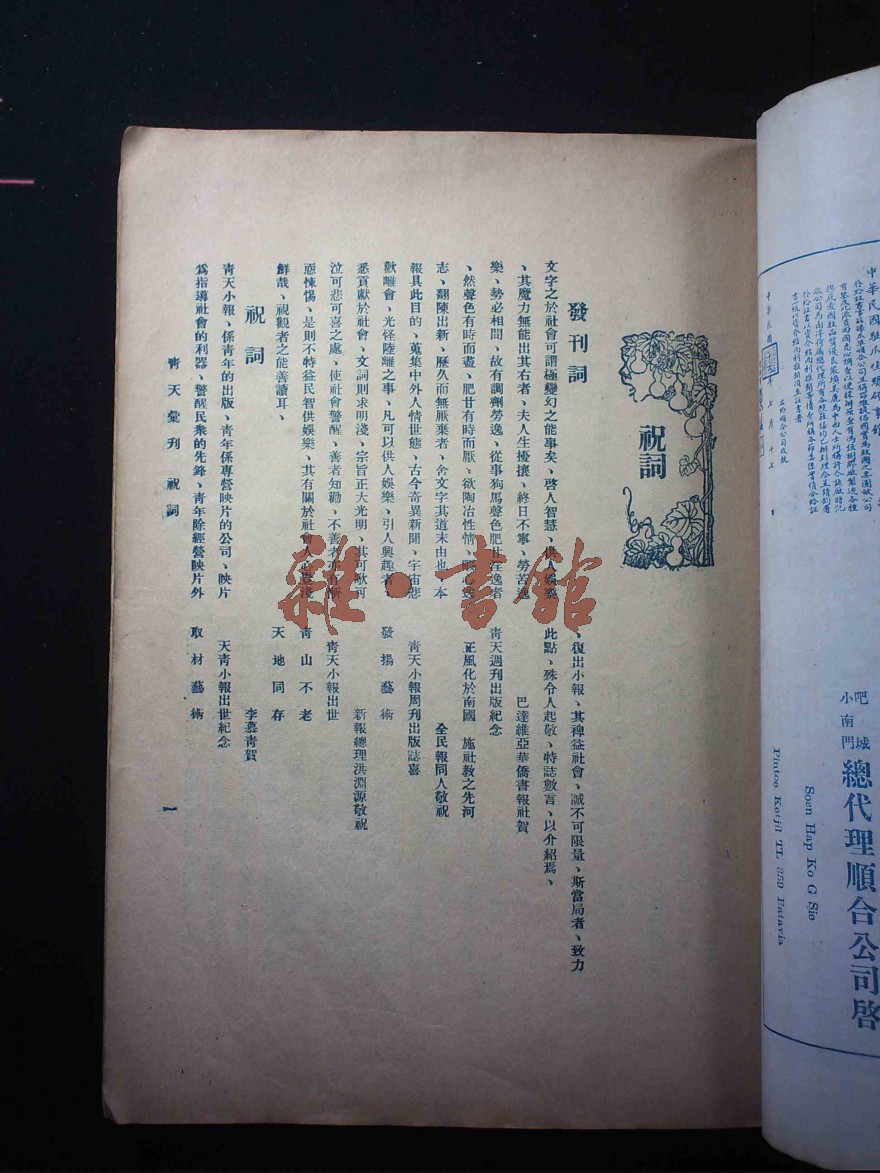 祝詞
發刊詞
文字之於社會可謂極變幻之能事矣、啓人智慧、供人娛樂
、其魔力無能出其右者、夫人生擾攘、終日不寧、勞苦逸
樂、勢必相間、故有調劑勞逸、從事狗馬聲色肥甘淫逸者
、然聲色有時而盡、肥甘有時而厭、欲陶冶性情、賞心逸
志、翻陳出新、歷久而無厭棄者、舍文字其道末由也、本
報具此目的、蒐集中外人情世態、古今奇異新聞、宇宙悲
歡離會、光怪陸離之事、凡可以供人娛樂、引人興趣者、
悉貢獻於社會、文詞則求明淺、宗旨正大光明、其可歌可
泣可悲可喜之處、使社會警醒、善者知勸、不善者亦有所
惡悚惕、是則不特益民智供娛樂、其有關於社會人心
鮮哉、視觀者之能善讀耳、
祝詞
青天小報、係青年的出版、青年係專營映片的公司、映片
爲指導社會的利器、警醒民衆的先鋒、青年除經營映片外
、復出小報、其裨益社會、誠不可限量、斯當局者、致力
此點、殊令人起敬、特誌數言、以介紹焉、
巴達維亞華僑書報社賀
青天週刊出版紀念
正風化於南國 施社教之先河
全民報同人敬祝
青天小報周刊出版誌喜
發揚藝術
新報總理洪淵源敬祝
青天小報出世
青山不老
天地同存
李慕青賀
天青小報出世紀念
取材藝術
青天彙刊 祝詞
一
雜·書館
中華民國駐爪哇總領事館
中華民國
吧城
小南門
總代理順合公司啓
Soen Hap Ko G Sie
Pintoe Ketjil TL 359 Batavia